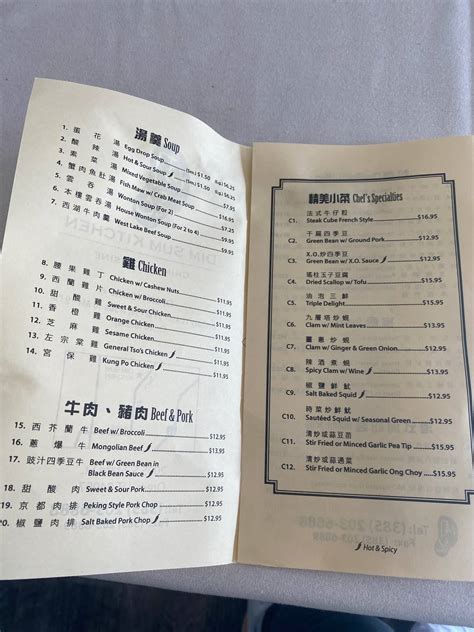 湯羹 Soup
1. 蛋花湯 Egg Drop Soup (sm) $1.50 (lg) $6.25
2. 酸辣湯 Hot & Sour Soup (sm) $1.50 (lg) $6.25
3. 素菜湯 Mixed Vegetable Soup $6.25
4. 蟹肉魚肚湯 Fish Maw w/ Crab Meat Soup
5. 雲吞湯 Wonton Soup (For 2)
6. 本樓雲吞湯 House Wonton Soup (For 2 to 4) $9.95
7. 西湖牛肉羹 West Lake Beef Soup $9.95
雞 Chicken
8. 腰果雞丁 Chicken w/ Cashew Nuts $11.95
9. 西蘭雞片 Chicken w/ Broccoli $11.95
10. 甜酸雞 Sweet & Sour Chicken $11.95
11. 香橙雞 Orange Chicken $11.95
12. 芝麻雞 Sesame Chicken $11.95
13. 左宗棠雞 General Tso's Chicken $11.95
14. 宮保雞 Kung Po Chicken $11.95
牛肉、豬肉 Beef & Pork
15. 西芥蘭牛 Beef w/ Broccoli $12.95
16. 蔥爆牛 Mongolian Beef $12.95
17. 豉汁四季豆牛 Beef w/ Green Bean in
Black Bean Sauce $12.95
18. 甜酸肉 Sweet & Sour Pork $12.95
19. 京都肉排 Peking Style Pork Chop $12.95
20. 椒鹽肉排 Salt Baked Pork Chop $12.95
精美小菜 Chef's Specialties
法式牛仔粒
C1. Steak Cube French Style $16.95
干扁四季豆
C2. Green Bean w/ Ground Pork $12.95
X.O.炒四季豆
C3. Green Bean w/ X.O. Sauce $12.95
瑤柱玉子豆腐
C4. Dried Scallop w/ Tofu $15.95
油泡三鮮
C5. Triple Delight $15.95
九層塔炒蜆
C6. Clam w/ Mint Leaves $13.95
薑蔥炒蜆
C7. Clam w/ Ginger & Green Onion $12.95
辣酒煮蜆
C8. Spicy Clam w/ Wine $13.95
椒鹽鮮魷
C9. Salt Baked Squid $12.95
時菜炒鮮魷
C10. Sautéed Squid w/ Seasonal Green $12.95
清炒或蒜豆苗
C11. Stir Fried or Minced Garlic Pea Tip $15.95
清炒或蒜通菜
C12. Stir Fried or Minced Garlic Ong Choy $15.95
Hot & Spicy